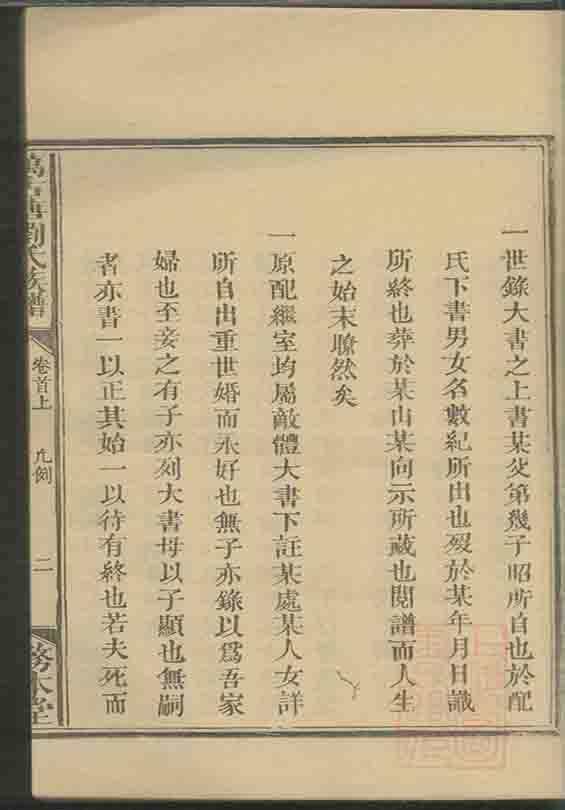 一世錄大書之上書某父第幾子昭所自也於配
氏下書男女名數紀所由也歿於某年月日識
所終也葬於某山某向示所藏也閱譜而人生
之始末瞭然矣
一原配繼室均屬敵體大書下註某處某人女詳
所自出重世婚而永好也無子亦錄以爲吾家
婦也至妾之有子亦列大書母以子顯也無嗣
者亦書一以正其始一以待有終也若夫死而
劉氏族譜
卷首上
凡例
二
務本堂